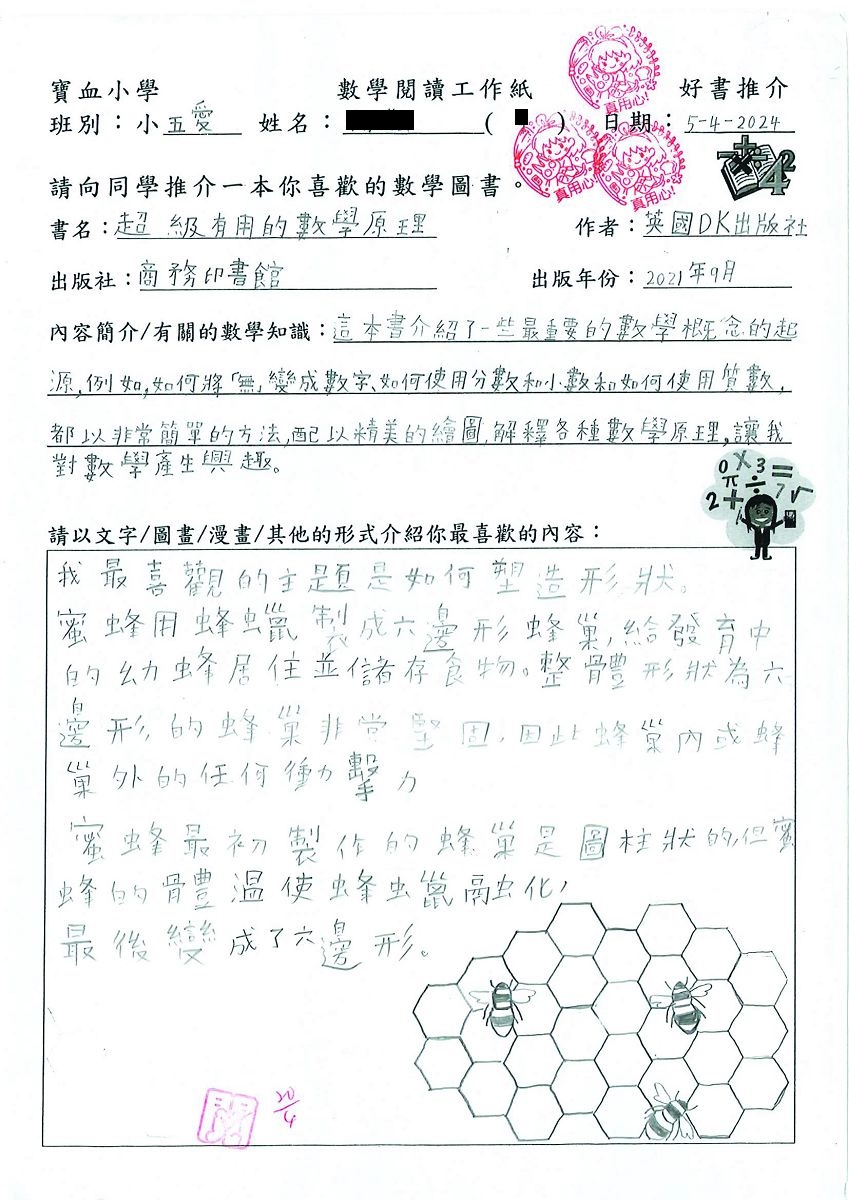 寶血小學 數學閱讀工作紙 好書推介
班別：小五愛 姓名： ( ) 日期：5-4-2024
真用心!
真用心!
真用心!
請向同學推介一本你喜歡的數學圖書。
書名：超級有用的數學原理 作者：英國DK出版社
出版社：商務印書館 出版年份：2021年9月
內容簡介/有關的數學知識：這本書介紹了一些最重要的數學概念的起
源,例如,如何將「無」變成數字、如何使用分數和小數和如何使用質數,
都以非常簡單的方法,配以精美的繪圖,解釋各種數學原理,讓我
對數學產生興趣。
請以文字/圖畫/漫畫/其他的形式介紹你最喜歡的內容：
我最喜觀的主題是如何塑造形狀。
蜜蜂用蜂蠟製成六邊形蜂巢,給發育中
的幼蜂居住並儲存食物。整體形狀為六
邊形的蜂巢非常堅固,因此蜂巢內或蜂
巢外的任何衝力擊力
蜜蜂最初製作的蜂巢是圓柱狀的,但蜜
蜂的體溫使蜂蠟融化,
最後變成了六邊形。
20/4